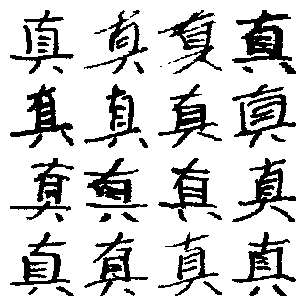 真真真真
真真真真
真真真真
真真真真